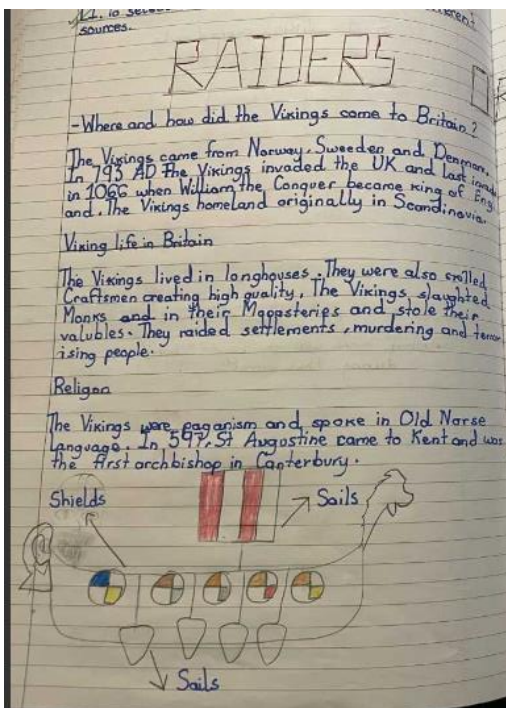 L.I. to select
different
sources.
RAIDERS
-Where and how did the Vikings come to Britain?
The Vikings came from Norway, Sweeden and Denmark.
In 793 AD The Vikings invaded the UK and last invade
in 1066 when William the Conquer became king of Engl
and. The Vikings homeland originally in Scandinavia.
Viking life in Britain
The Vikings lived in longhouses. They were also skilled
Craftsmen creating high quality. The Vikings slaughted
Monks and in their Monasteries and stole their
valubles. They raided settlements, murdering and terror
ising people.
Religon
The Vikings were paganism and spoke in Old Norse
Language. In 597, St Augustine came to Kent and was
the first archbishop in Canterbury.
Shields
Sails
Sails